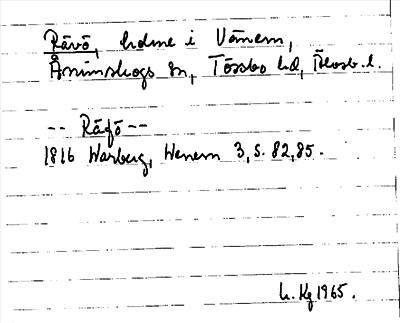 Rävö, holme i Vänern,
Ånimskogs sn, Tössbo hd, Älvsb. l.
-- Räfö --
1816 Warberg, Wenern 3, s. 82, 85.
L. Kg 1965.